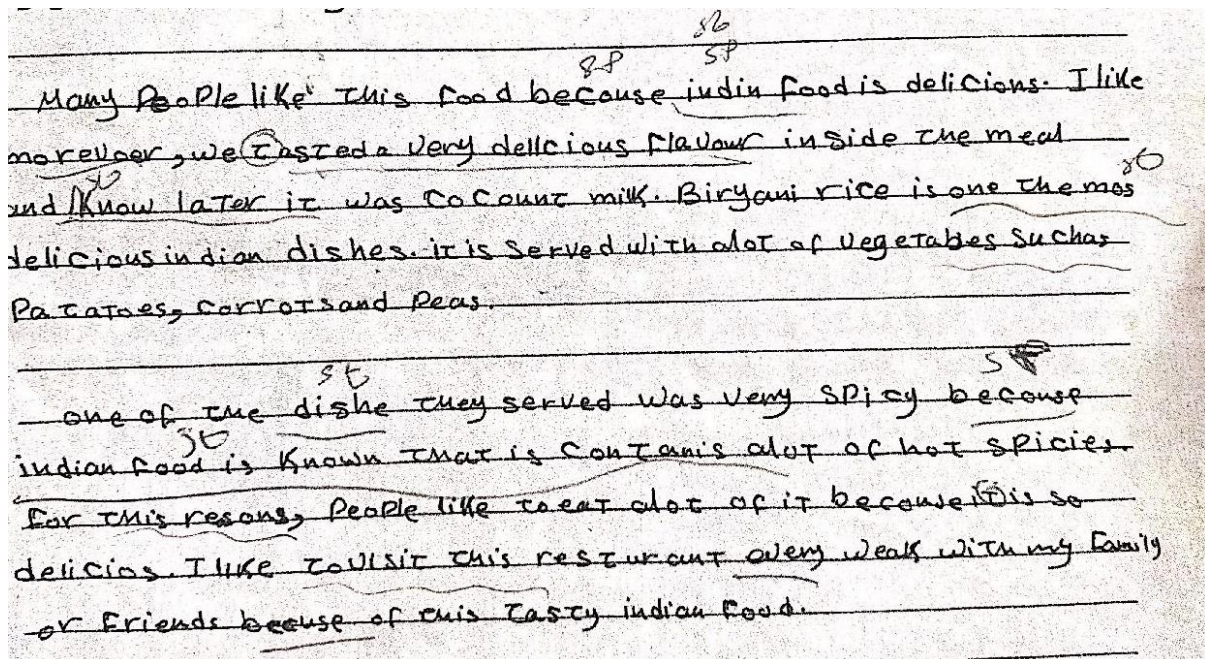 Many People like this food because indin food is delicions. I like
morevoer, we tasted a very dellcious flavour inside the meal
and I know later it was Cocount milk. Biryani rice is one the mos
delicious indian dishes. it is served with alot of vegetabes Such as
Patatoes, corrots and Peas.
one of the dishe they served was very spicy becouse
indian food is known that is contanis alot of hot spicies.
For this resons, People like to eat alot of it becouse it is so
delicios. I like to visit this resturant overy weak with my family
or friends becuse of this tasty indian food.